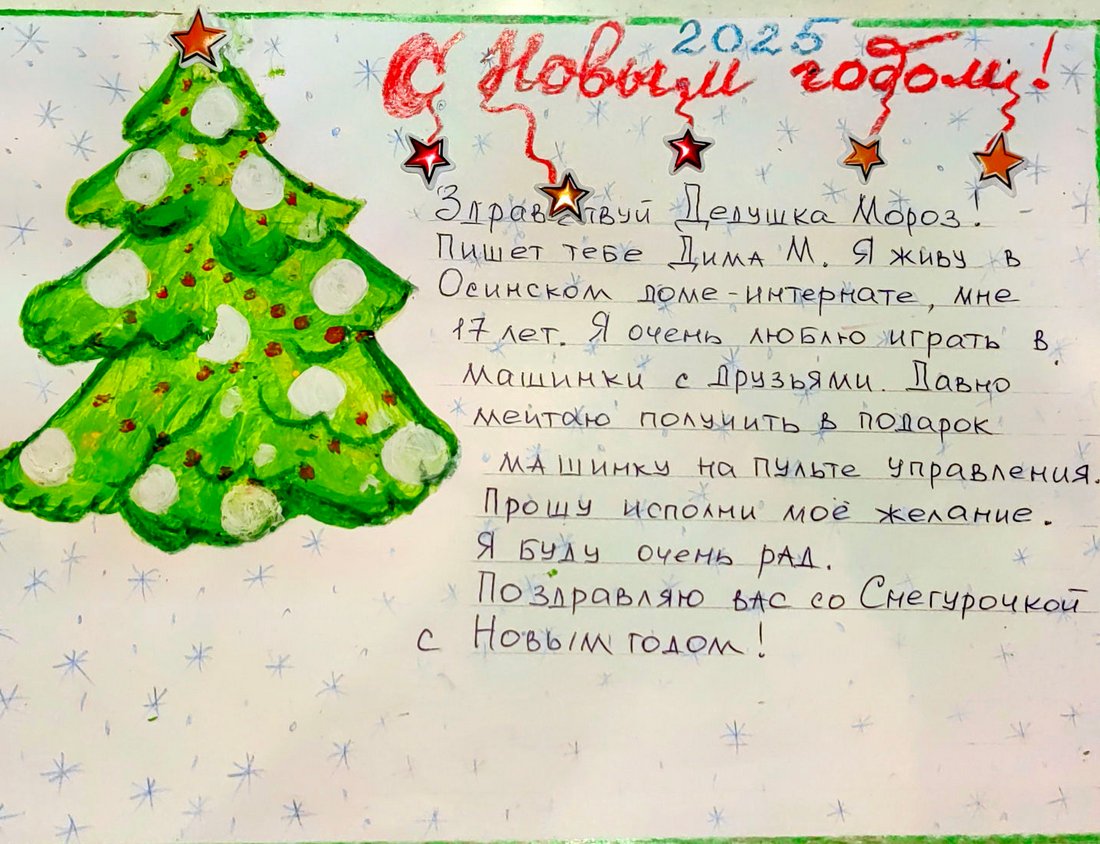 2025
С Новым годом!
Здравствуй Дедушка Мороз!
Пишет тебе Дима М. Я живу в
Осинском доме-интернате, мне
17 лет. Я очень люблю играть в
машинки с друзьями. Давно
мечтаю получить в подарок
машинку на пульте управления.
Прошу исполни моё желание.
Я буду очень рад.
Поздравляю вас со Снегурочкой
с Новым годом!